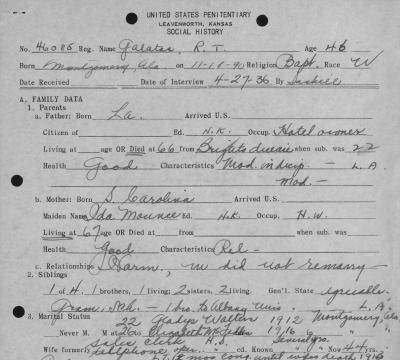 UNITED STATES PENITENTIARY
LEAVENWORTH, KANSAS
SOCIAL HISTORY
No. 46085 Reg. Name Galatas, R. T. Age 46
Born Montgomery, Ala. on 11-18-90 Religion Bapt. Race W
Date Received Date of Interview 4-27-36 By
A. FAMILY DATA
1. Parents
a. Father: Born La. Arrived U.S.
Citizen of Ed. N.K. Occup. Hotel owner
Living at age OR Died at 66 from Brights disease when sub. was 22
Health Good Characteristics Mod. in discip. - L. A
Mod. -
b. Mother: Born S. Carolina Arrived U.S.
Maiden Name Ida Ed. N.K. Occup. H.W.
Living at 67 age OR Died at from when sub. was
Health Good Characteristics Rel -
c. Relationships Harm, m did not remarry -
2. Siblings
1 of 4. 1 brothers, 1 living; 2 sisters, 2 living; Gen'l. State
Gram. Sch. - 1 bro. to Univ - L. A.
3. Marital Status 22 Gladys Walters 1912 Montgomery, Ala
Never M. M at Elizabeth 1916 in
Sales clerk H.S. Several yrs.
Wife formerly Telephone oper. ed. Known Now 44 yrs